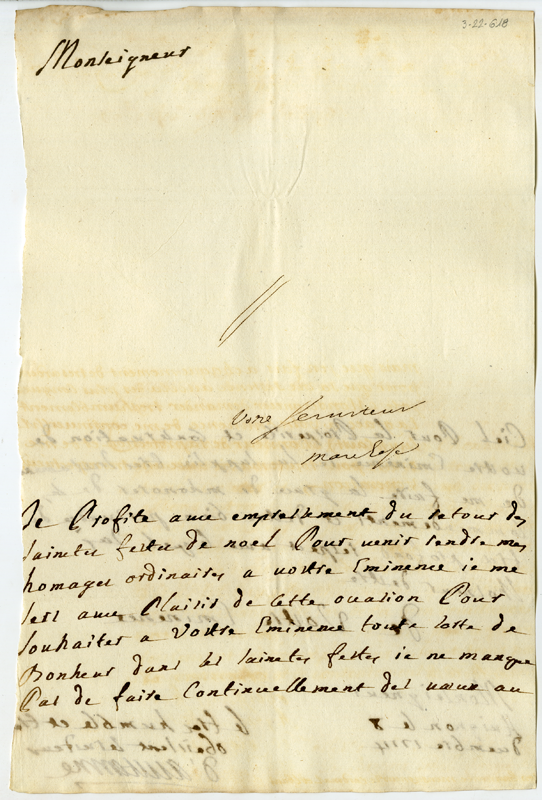 3-22-618
Monseigneur
votre serviteur
Je Profite avec empressement du retour des
saintes festes de noel Pour venir rendre mes
homages ordinaires a vostre Eminence ie me
sers avec Plaisir de cette ocasion Pour
souhaiter a Vostre Eminence toute sorte de
Bonheur dans les saintes festes ie ne manque
Pas de faire Continuellement des vœux au